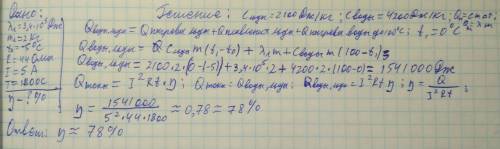 Дано:
λл=3,4·10⁵ Дж
m=2 кг
t₀=-5°C
R=44 Ом
I=5 А
T=1800с
η-?%
Решение: Cльда=2100 Дж/кг; Cводы=4200 Дж/кг; Q₁=cmΔt;
t₁=0°C
Qводы,льда=Qнагрева льда+Qплавления льда+Qнагрева воды до 100°C;
Qводы,льда=Q Cльда m(t₁-t₀)+λл m+Cводы m(100-t₁);
Qводы,льда=2100·2·(0-(-5))+3,4·10⁵·2+4200·2·(100-0)=1541000 Дж
Qтока=I²Rt·η; Qтока=Qводы,льда; Qводы,льда=I²Rtη; η=Q/I²Rt;
η=1541000/5²·44·1800≈0,78≈78%
Ответ: η≈78%